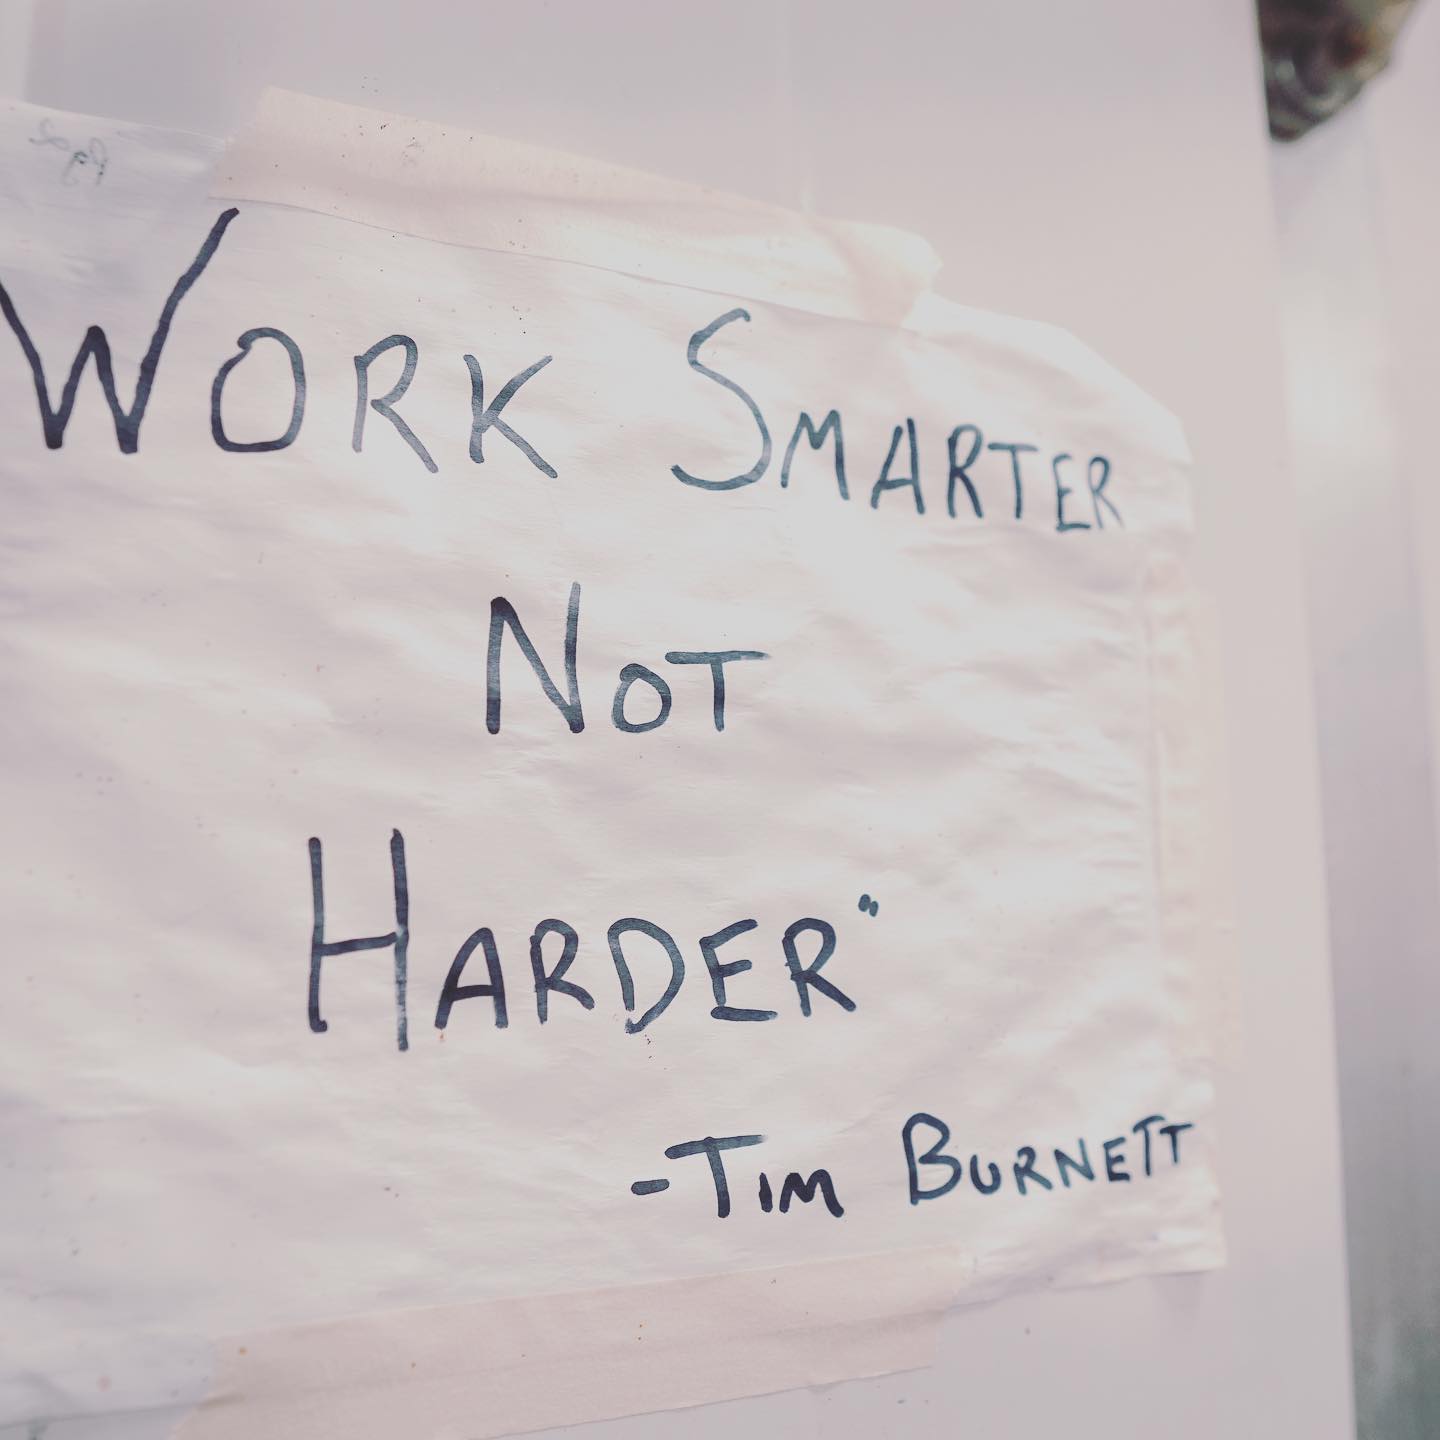 WORK SMARTER
NOT
HARDER"
-TIM BURNETT